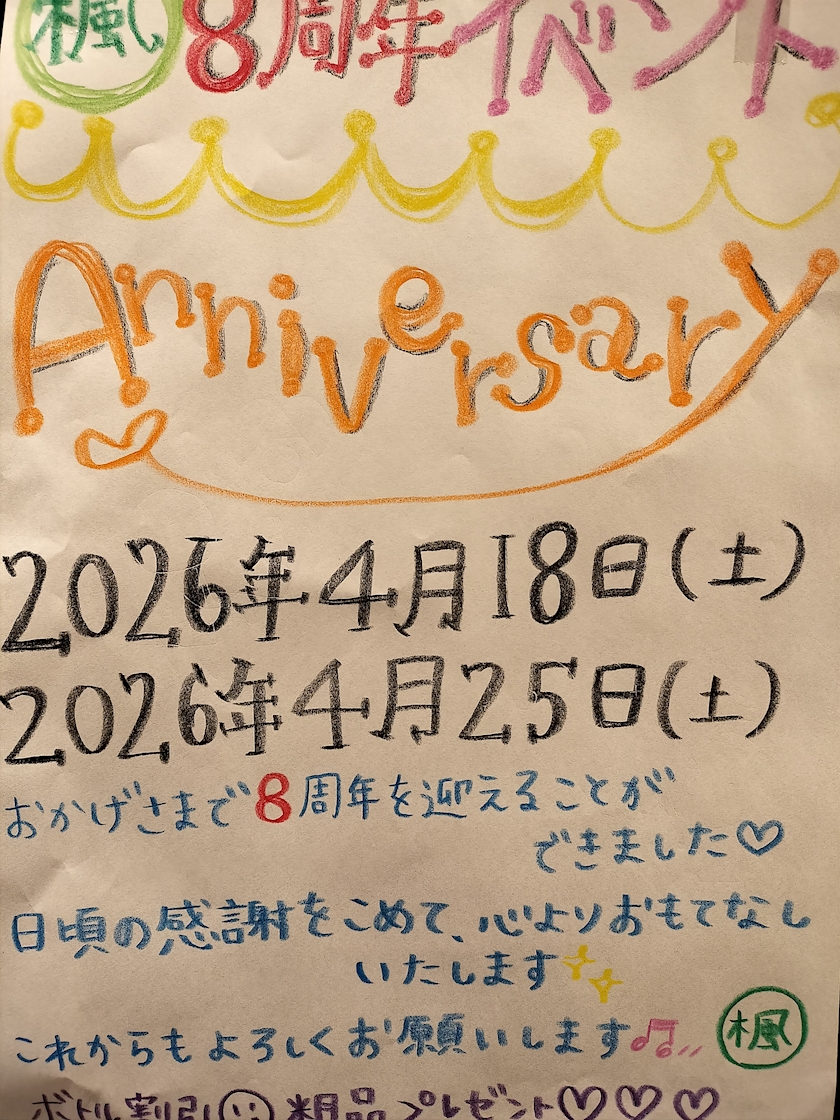 楓 8周年イベント
Anniversary
2026年4月18日(土)
2026年4月25日(土)
おかげさまで8周年を迎えることが
できました♡
日頃の感謝をこめて、心よりおもてなし
いたします✨
これからもよろしくお願いします♫ 楓
ボトル割引☺ 粗品プレゼント♡♡♡